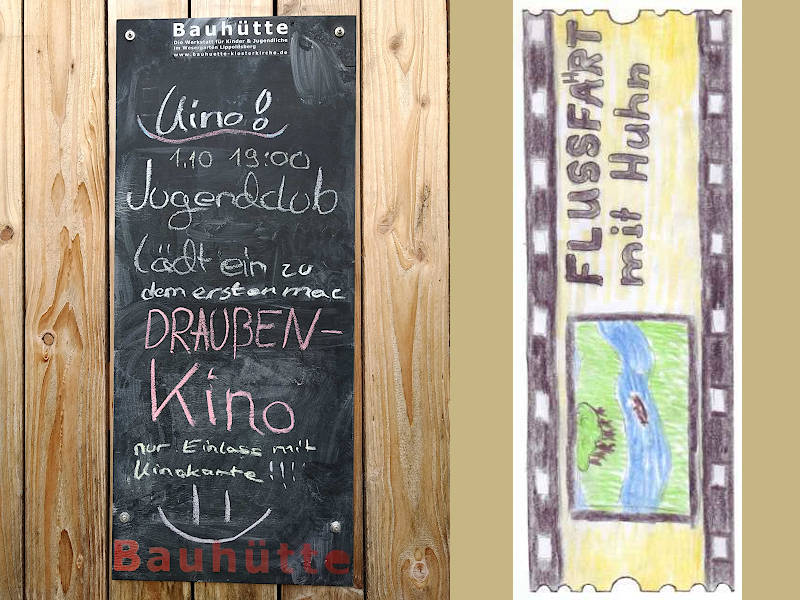 Bauhütte
Die Werkstatt für Kinder & Jugendliche
im Wesergarten Lippoldsberg
www.bauhuette-klosterkirche.de
Kino!
1.10 19:00
Jugendclub
lädt ein zu
dem ersten mal
DRAUßEN-
Kino
nur Einlass mit
Kinokarte!!!
Bauhütte
FLUSSFART
mit Huhn